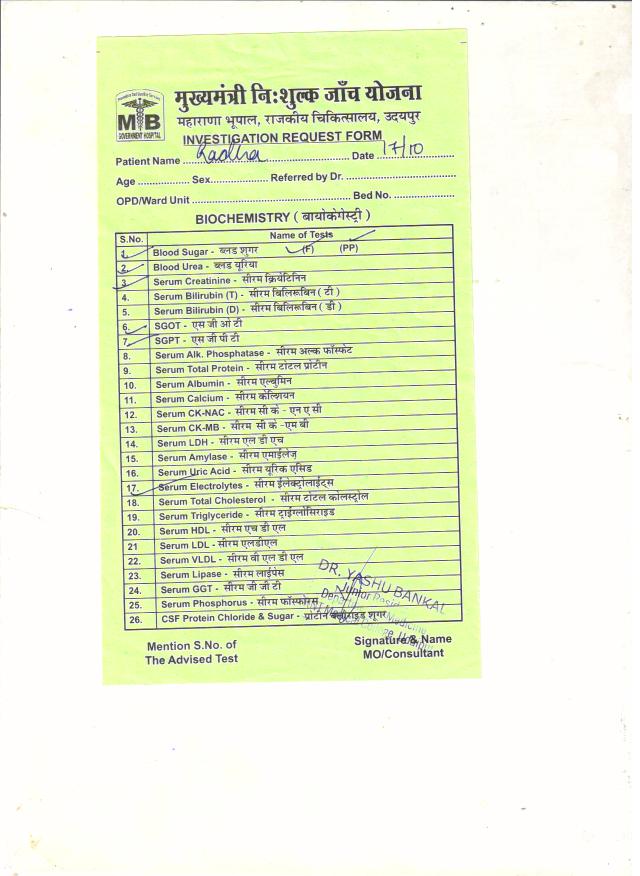 मुख्यमंत्री निःशुल्क जाँच योजना
महाराणा भूपाल, राजकीय चिकित्सालय, उदयपुर
MB
GOVERNMENT HOSPITAL
INVESTIGATION REQUEST FORM
Patient Name Radha Date 17/10
Age ................. Sex.................. Referred by Dr. ..................................
OPD/Ward Unit ................................................ Bed No. ...................
BIOCHEMISTRY ( बायोकेगेस्ट्री )
S.No. Name of Tests
1. Blood Sugar - ब्लड शुगर (F) (PP)
2. Blood Urea - ब्लड यूरिया
3. Serum Creatinine - सीरम क्रियेटिनिन
4. Serum Bilirubin (T) - सीरम बिलिरूबिन ( टी )
5. Serum Bilirubin (D) - सीरम बिलिरूबिन ( डी )
6. SGOT - एस जी ओ टी
7. SGPT - एस जी पी टी
8. Serum Alk. Phosphatase - सीरम अल्क फॉस्फेट
9. Serum Total Protein - सीरम टोटल प्रोटीन
10. Serum Albumin - सीरम एल्बुमिन
11. Serum Calcium - सीरम केल्शियन
12. Serum CK-NAC - सीरम सी के - एन ए सी
13. Serum CK-MB - सीरम सी के -एम बी
14. Serum LDH - सीरम एल डी एच
15. Serum Amylase - सीरम एमाईलेज
16. Serum Uric Acid - सीरम यूरिक एसिड
17. Serum Electrolytes - सीरम ईलेक्ट्रोलाईट्स
18. Serum Total Cholesterol - सीरम टोटल कोलस्ट्रोल
19. Serum Triglyceride - सीरम ट्राईग्लोसिराइड
20. Serum HDL - सीरम एच डी एल
21 Serum LDL - सीरम एलडीएल
22. Serum VLDL - सीरम वी एल डी एल
23. Serum Lipase - सीरम लाईपेस
24. Serum GGT - सीरम जी जी टी
25. Serum Phosphorus - सीरम फॉस्फोरस
26. CSF Protein Chloride & Sugar - प्रोटीन क्लोराइड शूगर
DR. YASHU BANKAL
Junior Resid
Medicine
Mention S.No. of
The Advised Test
Signature & Name
MO/Consultant